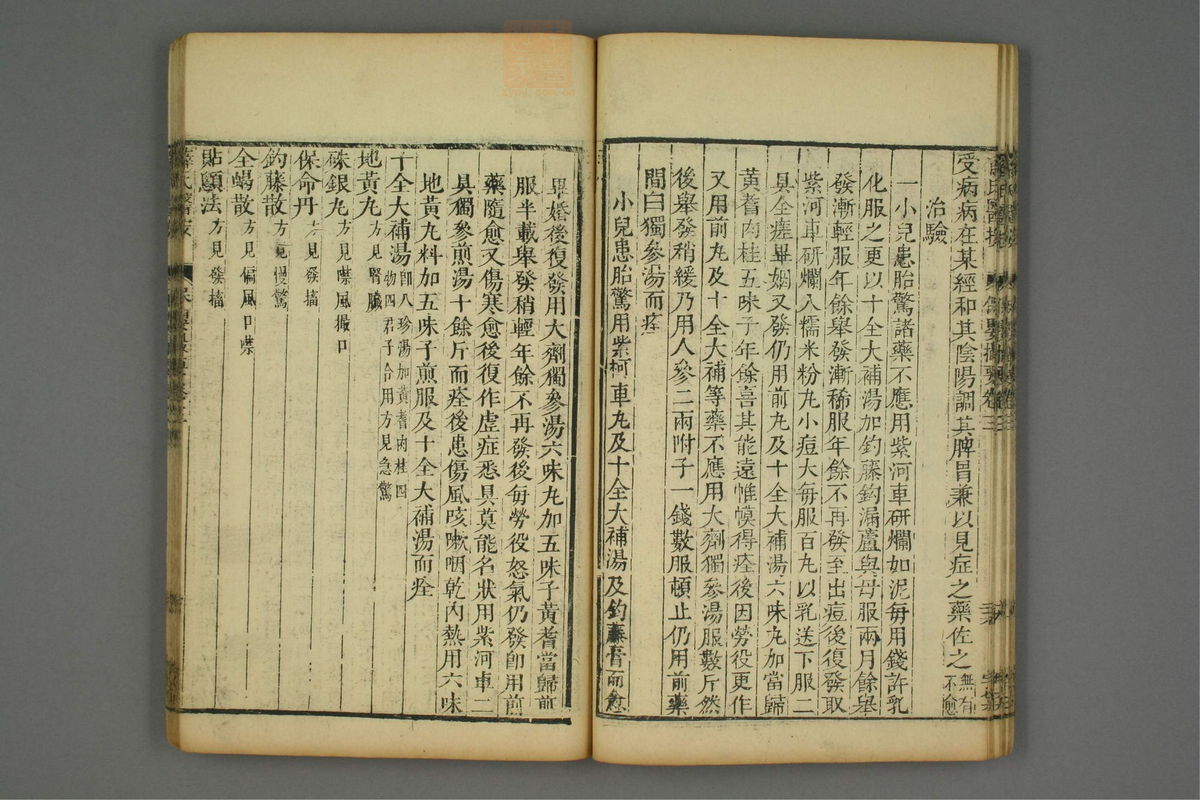 受病病在某經和其陰陽調其脾胃兼以見症之藥佐之無有不愈
治驗
一小兒患胎驚諸藥不應用紫河車研爛如泥每用錢許乳
化服之更以十全大補湯加釣藤鈎漏蘆與母服兩月餘舉
發漸輕服年餘舉發漸稀服年餘不再發至出痘後復發取
紫河車研爛入糯米粉丸小痘大每服百丸以乳送下服二
具全瘥畢姻又發仍用前丸及十全大補湯六味丸加當歸
黃耆肉桂五味子年餘喜其能遠帷幙得痊後因勞役更作
又用前丸及十全大補等藥不應用大劑獨參湯服數斤然
後舉發稍緩乃用人參二兩附子一錢數服頓止仍用前藥
間曰獨參湯而痊
小兒患胎驚用紫河車丸及十全大補湯及釣藤膏而愈
畢婚後復發用大劑獨參湯六味丸加五味子黃耆當歸煎
服半載舉發稍輕年餘不再發後每勞役怒氣仍發卽用煎
藥隨愈又傷寒愈後復作虛症悉具莫能名狀用紫河車二
具獨參煎湯十餘斤而痊後患傷風咳嗽咽乾內熱用六味
地黃丸料加五味子煎服及十全大補湯而痊
十全大補湯卽八珍湯加黃耆肉桂四物四君子合用方見急驚
地黃丸方見腎臟
硃銀丸方見噤風撮口
保命丹方見發搐
釣藤散方見慢驚
全蝎散方見偏風口噤
貼顖法方見發搐
薛氏醫按